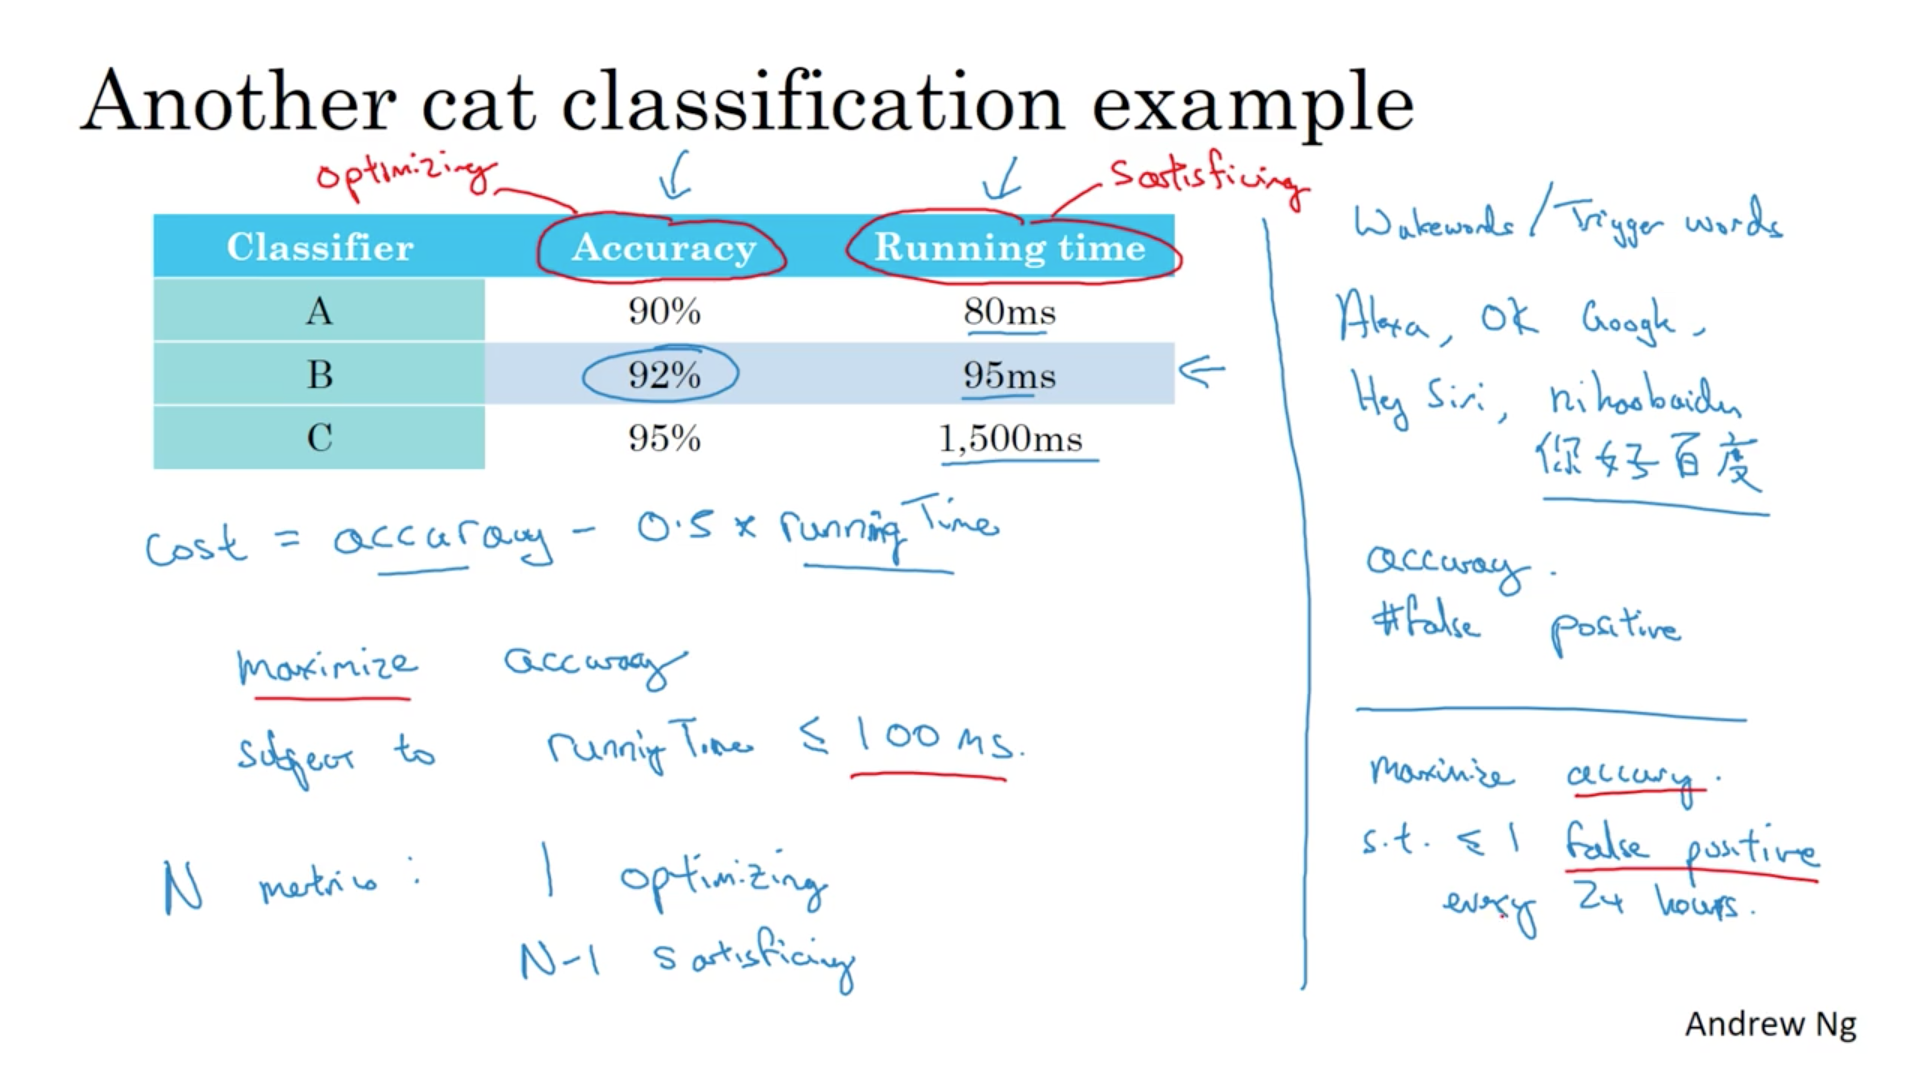 Another cat classification example
optimizing
Satisficing
Classifier Accuracy Running time
A 90% 80ms
B 92% 95ms
C 95% 1,500ms
cost = accuracy - 0.5 x runningTime
maximize accuracy
subject to runningTime ≤ 100 ms.
N metrics: 1 optimizing
N-1 satisficing
Wakewords / Trigger words
Alexa, OK Google,
Hey Siri, nihaobaidu
你好百度
accuracy.
#false positive
Maximize accuracy.
s.t. ≤ 1 false positive
every 24 hours.
Andrew Ng